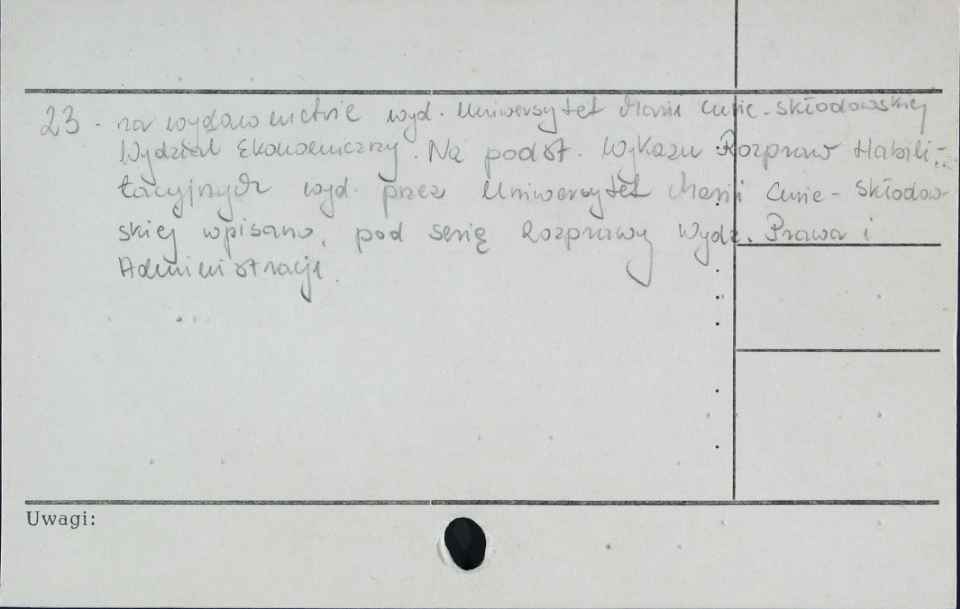 23 - na wydawnictwie wyd. Uniwersytet Marii Curie-Skłodowskiej
Wydział Ekonomiczny. Na podst. Wykazu Rozpraw Habili-
tacyjnych wyd. przez Uniwersytet Marii Curie-Skłodow-
skiej wpisano, pod serię Rozprawy Wydz. Prawa i
Administracji.
Uwagi: